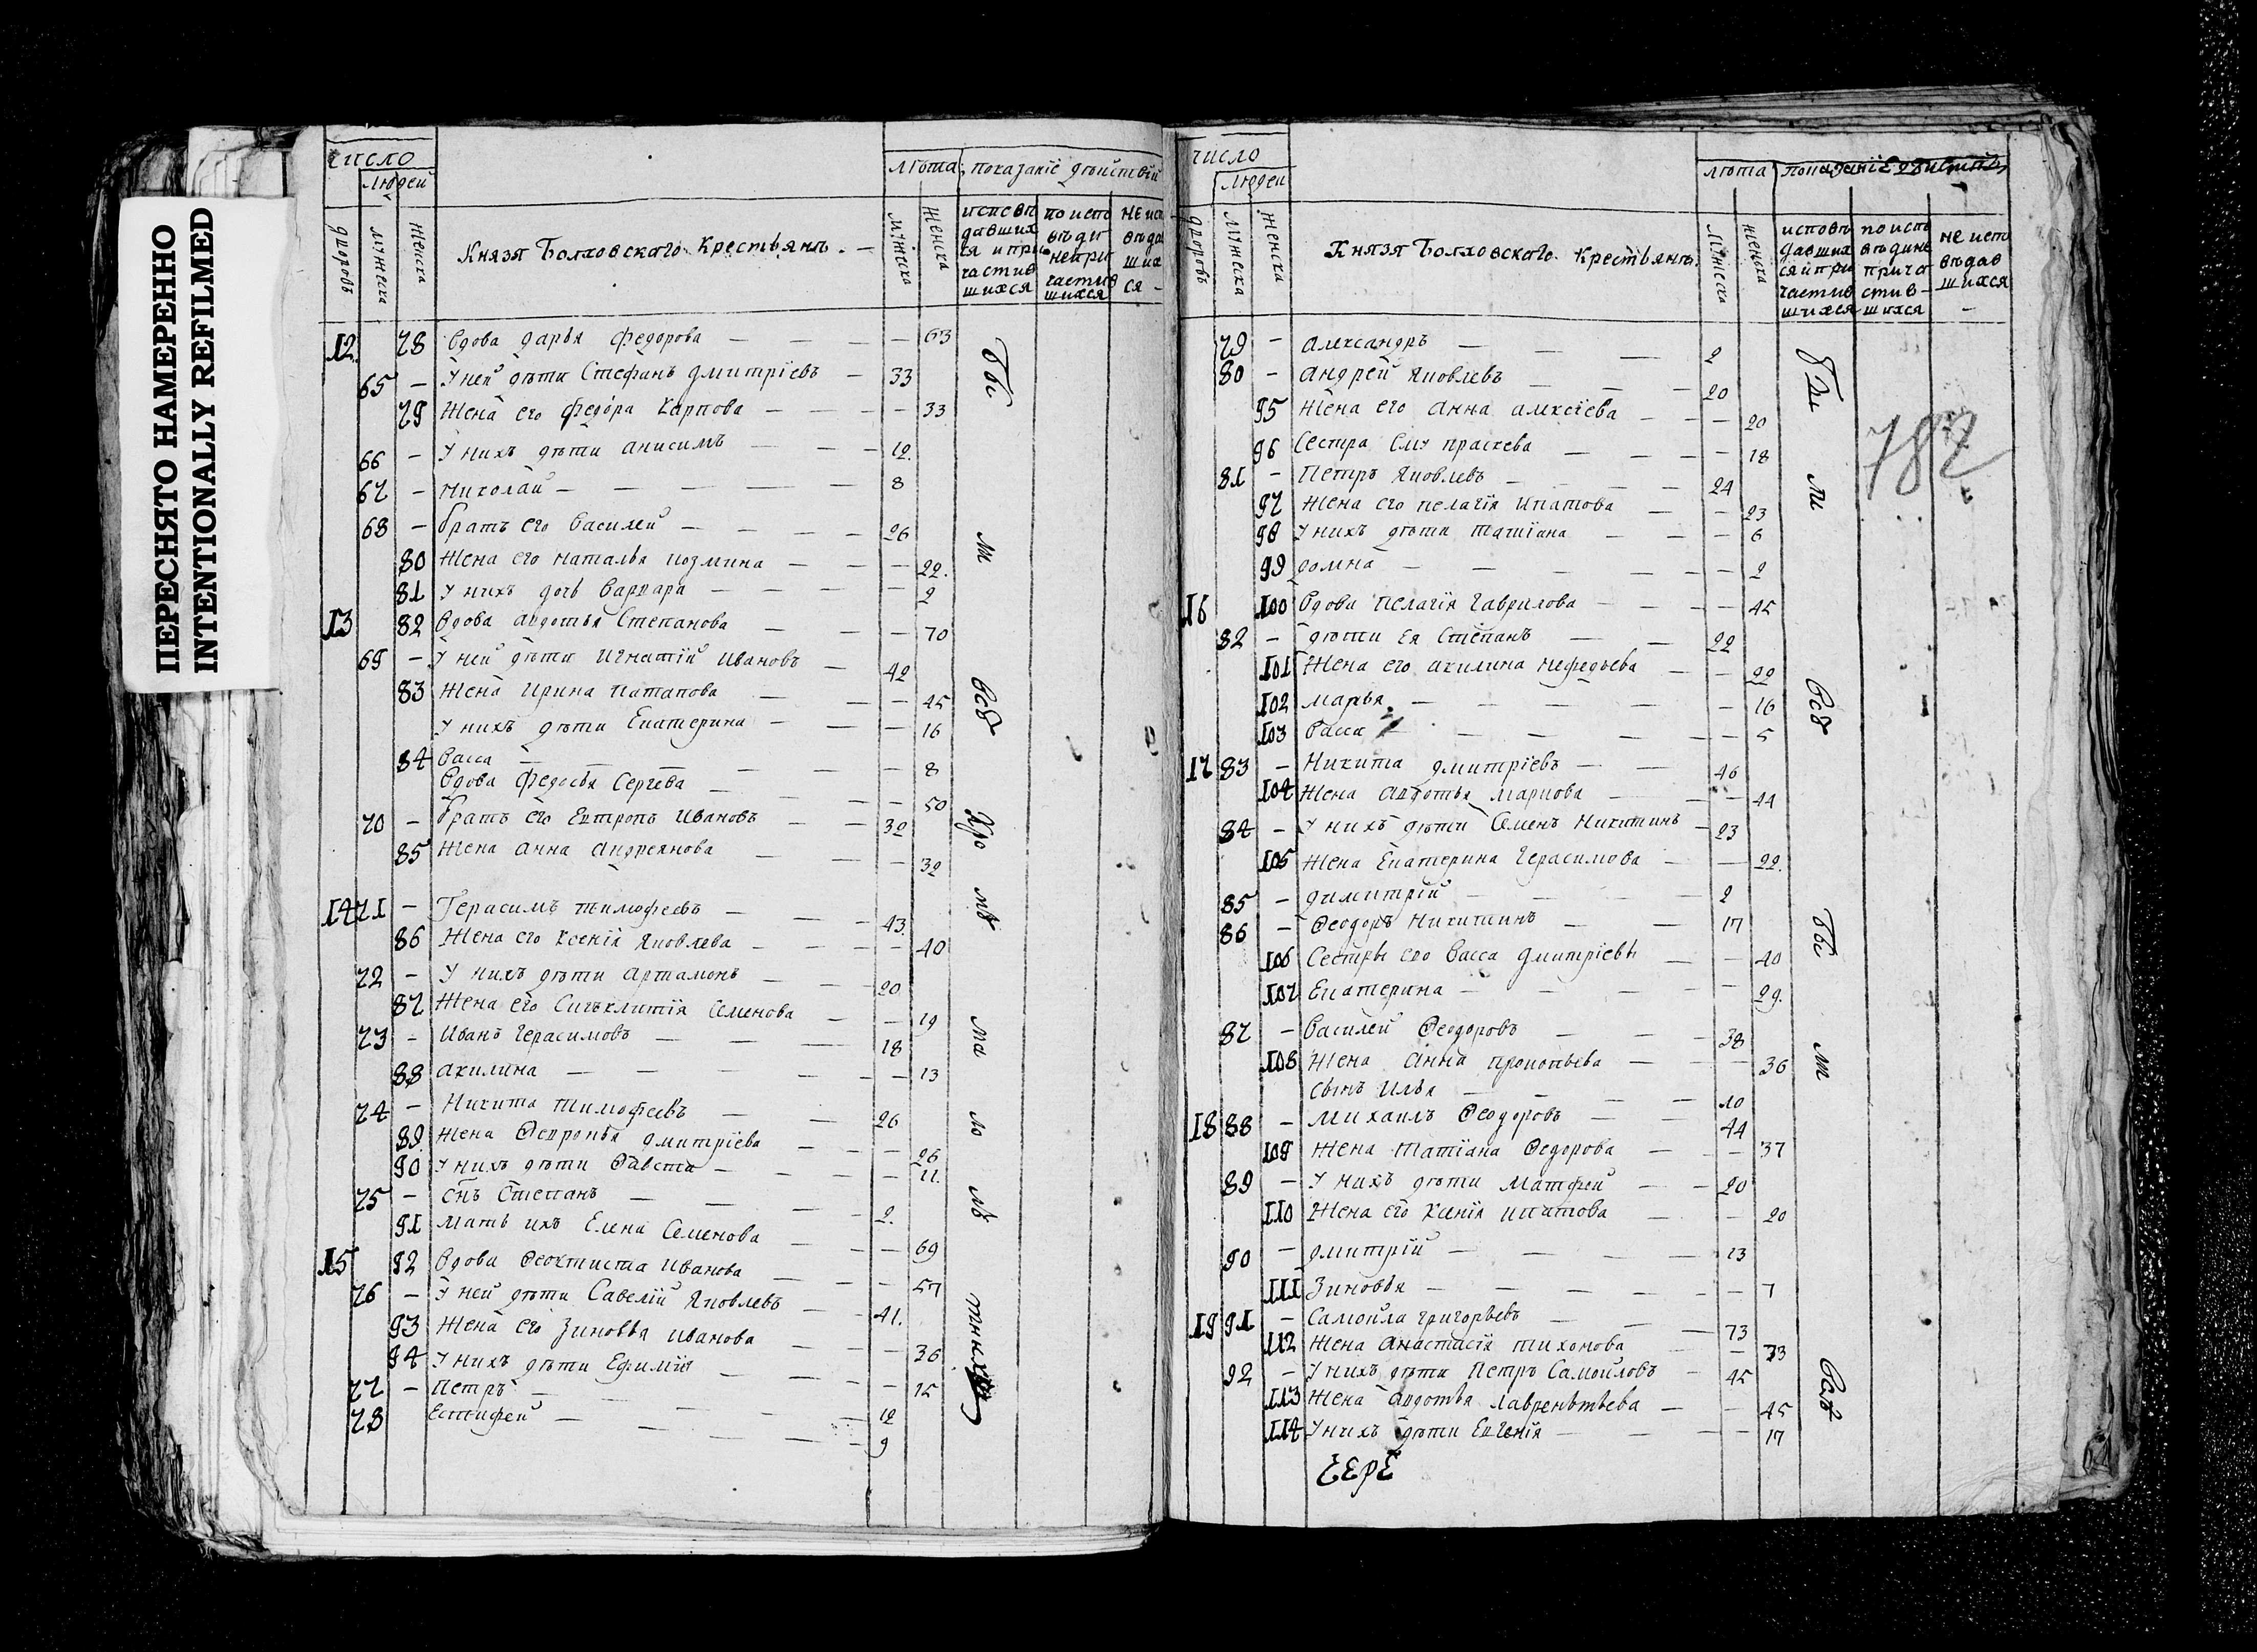 ПЕРЕСНЯТО НАМЕРЕННО
INTENTIONALLY REFILMED
число
людей
дворовъ
мужеска
женска
Князя Болховскаго Крестьянъ. —
лѣта
мужеска
женска
показанiе дѣйствiй
исповѣ
давших
ся и при
частив
шихся
по испо
вѣди
непри
частив
шихся
не ис
вѣда
ших
ся -
12 78 Вдова дарья Федорова — — — — 63
65 - У ней дѣти Стефанъ дмитрiевъ — 33
79 Жена его Федора Карпова — — — — 33
66 - У нихъ дѣти анисимъ — — — 12.
67 - Николай — — — — — 8
68 - братъ его василей — — — — 26
80 Жена его наталья козмина — — — 22.
81 У нихъ дочь варвара — — — — 2
13 82 Вдова авдотья Степанова — — — 70
69 - У ней дѣти игнатiй ивановъ — 42
83 Жена ирина патапова — — — 45
У нихъ дѣти Екатерина — — — 16
84 васса — — — — — 8
вдова Федосья Сергева — — — — 50
70 - братъ его Евтропъ ивановъ — — 32
85 Жена анна андреянова — — — 32
14 71 - Герасимъ тимофеевъ — — — 43.
86 Жена его Ксенiя яковлева — — — 40
72 - У нихъ дѣти артамонъ — — — 20
87 Жена его Сигъклитiя Семенова — — 19
73 - иванъ герасимовъ — — — 18
88 акилина — — — — — — 13
74 - Никита тимофеевъ — — 26
89. Жена Ѳевронья дмитрiева — — — 26
90 У нихъ дѣти Ѳавста — — — — 11.
75 - снъ Степанъ — — — 2.
91 мать ихъ Елена Семенова — — — 69
15 92 вдова Ѳеоктиста иванова — — — 57
76 - У ней дѣти Савелiй яковлевъ — — 41.
93 Жена его Зиновья иванова — — — 36
94 У нихъ дѣти Ефимiя — — — — 15
77 - Петръ — — — — 12
78 Евтифей — — — — — 9
бы
т
всѣ
Кро
мѣ
ма
ло
лѣ
число
людей
дворовъ
мужеска
женска
Князя Болховскаго Крестьянъ.
лѣта
мужеска
женска
показанiе дѣйствiй
исповѣ
давших
ся и при
частив
шихся
по исп
вѣди не
прича
стив-
шихся
не испо
вѣдав
шихся
-
79 - александръ — — — 2
80 - андрей яковлевъ — — — 20
95 Жена его анна алексiева — — — 20
96 Сестра ему праскева — — — — 18
81 - Петръ яковлевъ — — — 24
97 Жена его пелагiя ипатова — — 23
98 У нихъ дѣти татiана — — — 6
99 домна — — — — — — 2
16 100 вдова пелагiя гаврилова — — — 45
82 - дѣти ея Степанъ — — 22
101 Жена его акилина нефедьева — — 22
102 марья — — — — — 16
103 васса — — — — — 5
17 83 - Никита дмитрiевъ — — 46
104 Жена авдотья маркова — — — 44
84 - У нихъ дѣти Семенъ Никитинъ — 23
105 Жена Екатерина герасимова — — 22.
85 - димитрiй — — — 2
86 - Ѳеодоръ никитинъ — — 17
106 Сестры его васса дмитрiевы — — 40
107 Екатерина — — — — — 29.
87 - василей Ѳеодоровъ — — — 38
108 Жена анна прокопьева — — — 36
сынъ илья — — — — 10
18 88 - михаилъ Ѳеодоровъ — — 44
109 Жена татiана Ѳедорова — — 37
89 - У нихъ дѣти матфей — — 20
110 Жена его Ксенiя ипатова — — 20
90 - дмитрiй — — — — 13
111 Зиновья — — — — — — 7
19 91 - Самойла григорьевъ — — — 73
112 Жена анастасiя тихонова — — 73
92 - У нихъ дѣти Петръ Самойловъ — 45
113 Жена авдотья лаврентьева — — 45
114 У нихъ дѣти Евгенiя — — — — 17
782
ли
всѣ
бы
т
ЕЕРЕ